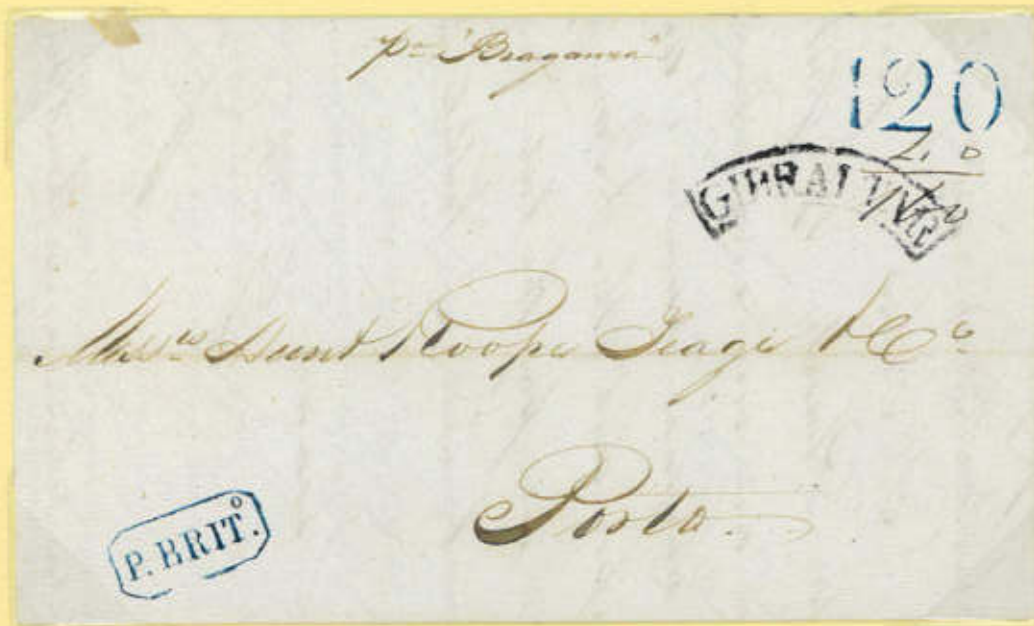 pr "Braganza"
120
GIBRALTAR
Messrs Hunt Roope Teage & Co
Porto.
P. BRIT.º